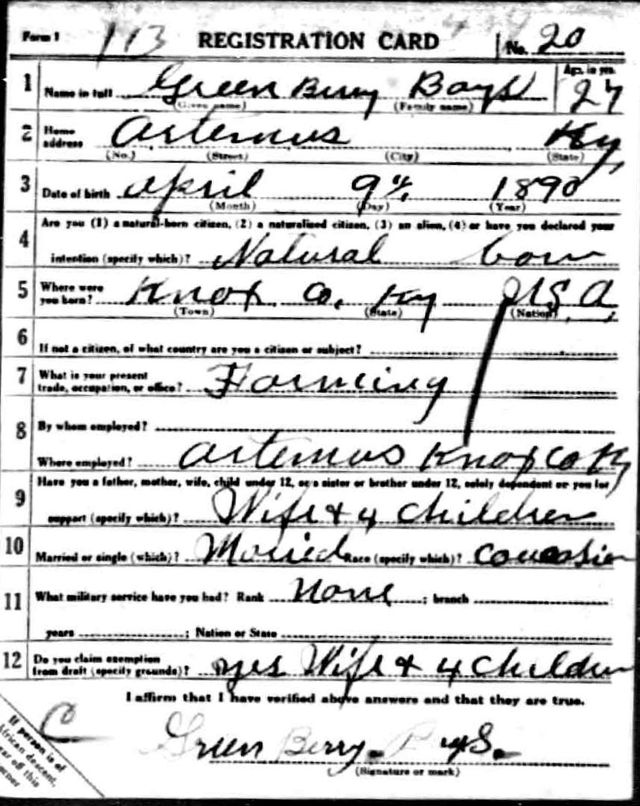 Form 1 113 REGISTRATION CARD No. 20
1 Name in full Green Berry Bays Age, in yrs. 27
(Given name) (Family name)
2 Home address Artemus Ky,
(No.) (Street) (City) (State)
3 Date of birth April 9th, 1890
(Month) (Day) (Year)
4 Are you (1) a natural-born citizen, (2) a naturalized citizen, (3) an alien, (4) or have you declared your
intention (specify which)? Natural born
5 Where were you born? Knox Co. Ky U.S.A.
(Town) (State) (Nation)
6 If not a citizen, of what country are you a citizen or subject?
7 What is your present trade, occupation, or office? Farming
8 By whom employed?
Where employed? Artemus Knox Co Ky
9 Have you a father, mother, wife, child under 12, or a sister or brother under 12, solely dependent on you for
support (specify which)? Wife & 4 children
10 Married or single (which)? Maried Race (specify which)? Coucasian
11 What military service have you had? Rank None ; branch
years ; Nation or State
12 Do you claim exemption from draft (specify grounds)? yes Wife & 4 Children
I affirm that I have verified above answers and that they are true.
Green Berry. Bays.
(Signature or mark)
C
If person is of
African descent,
tear off this
corner